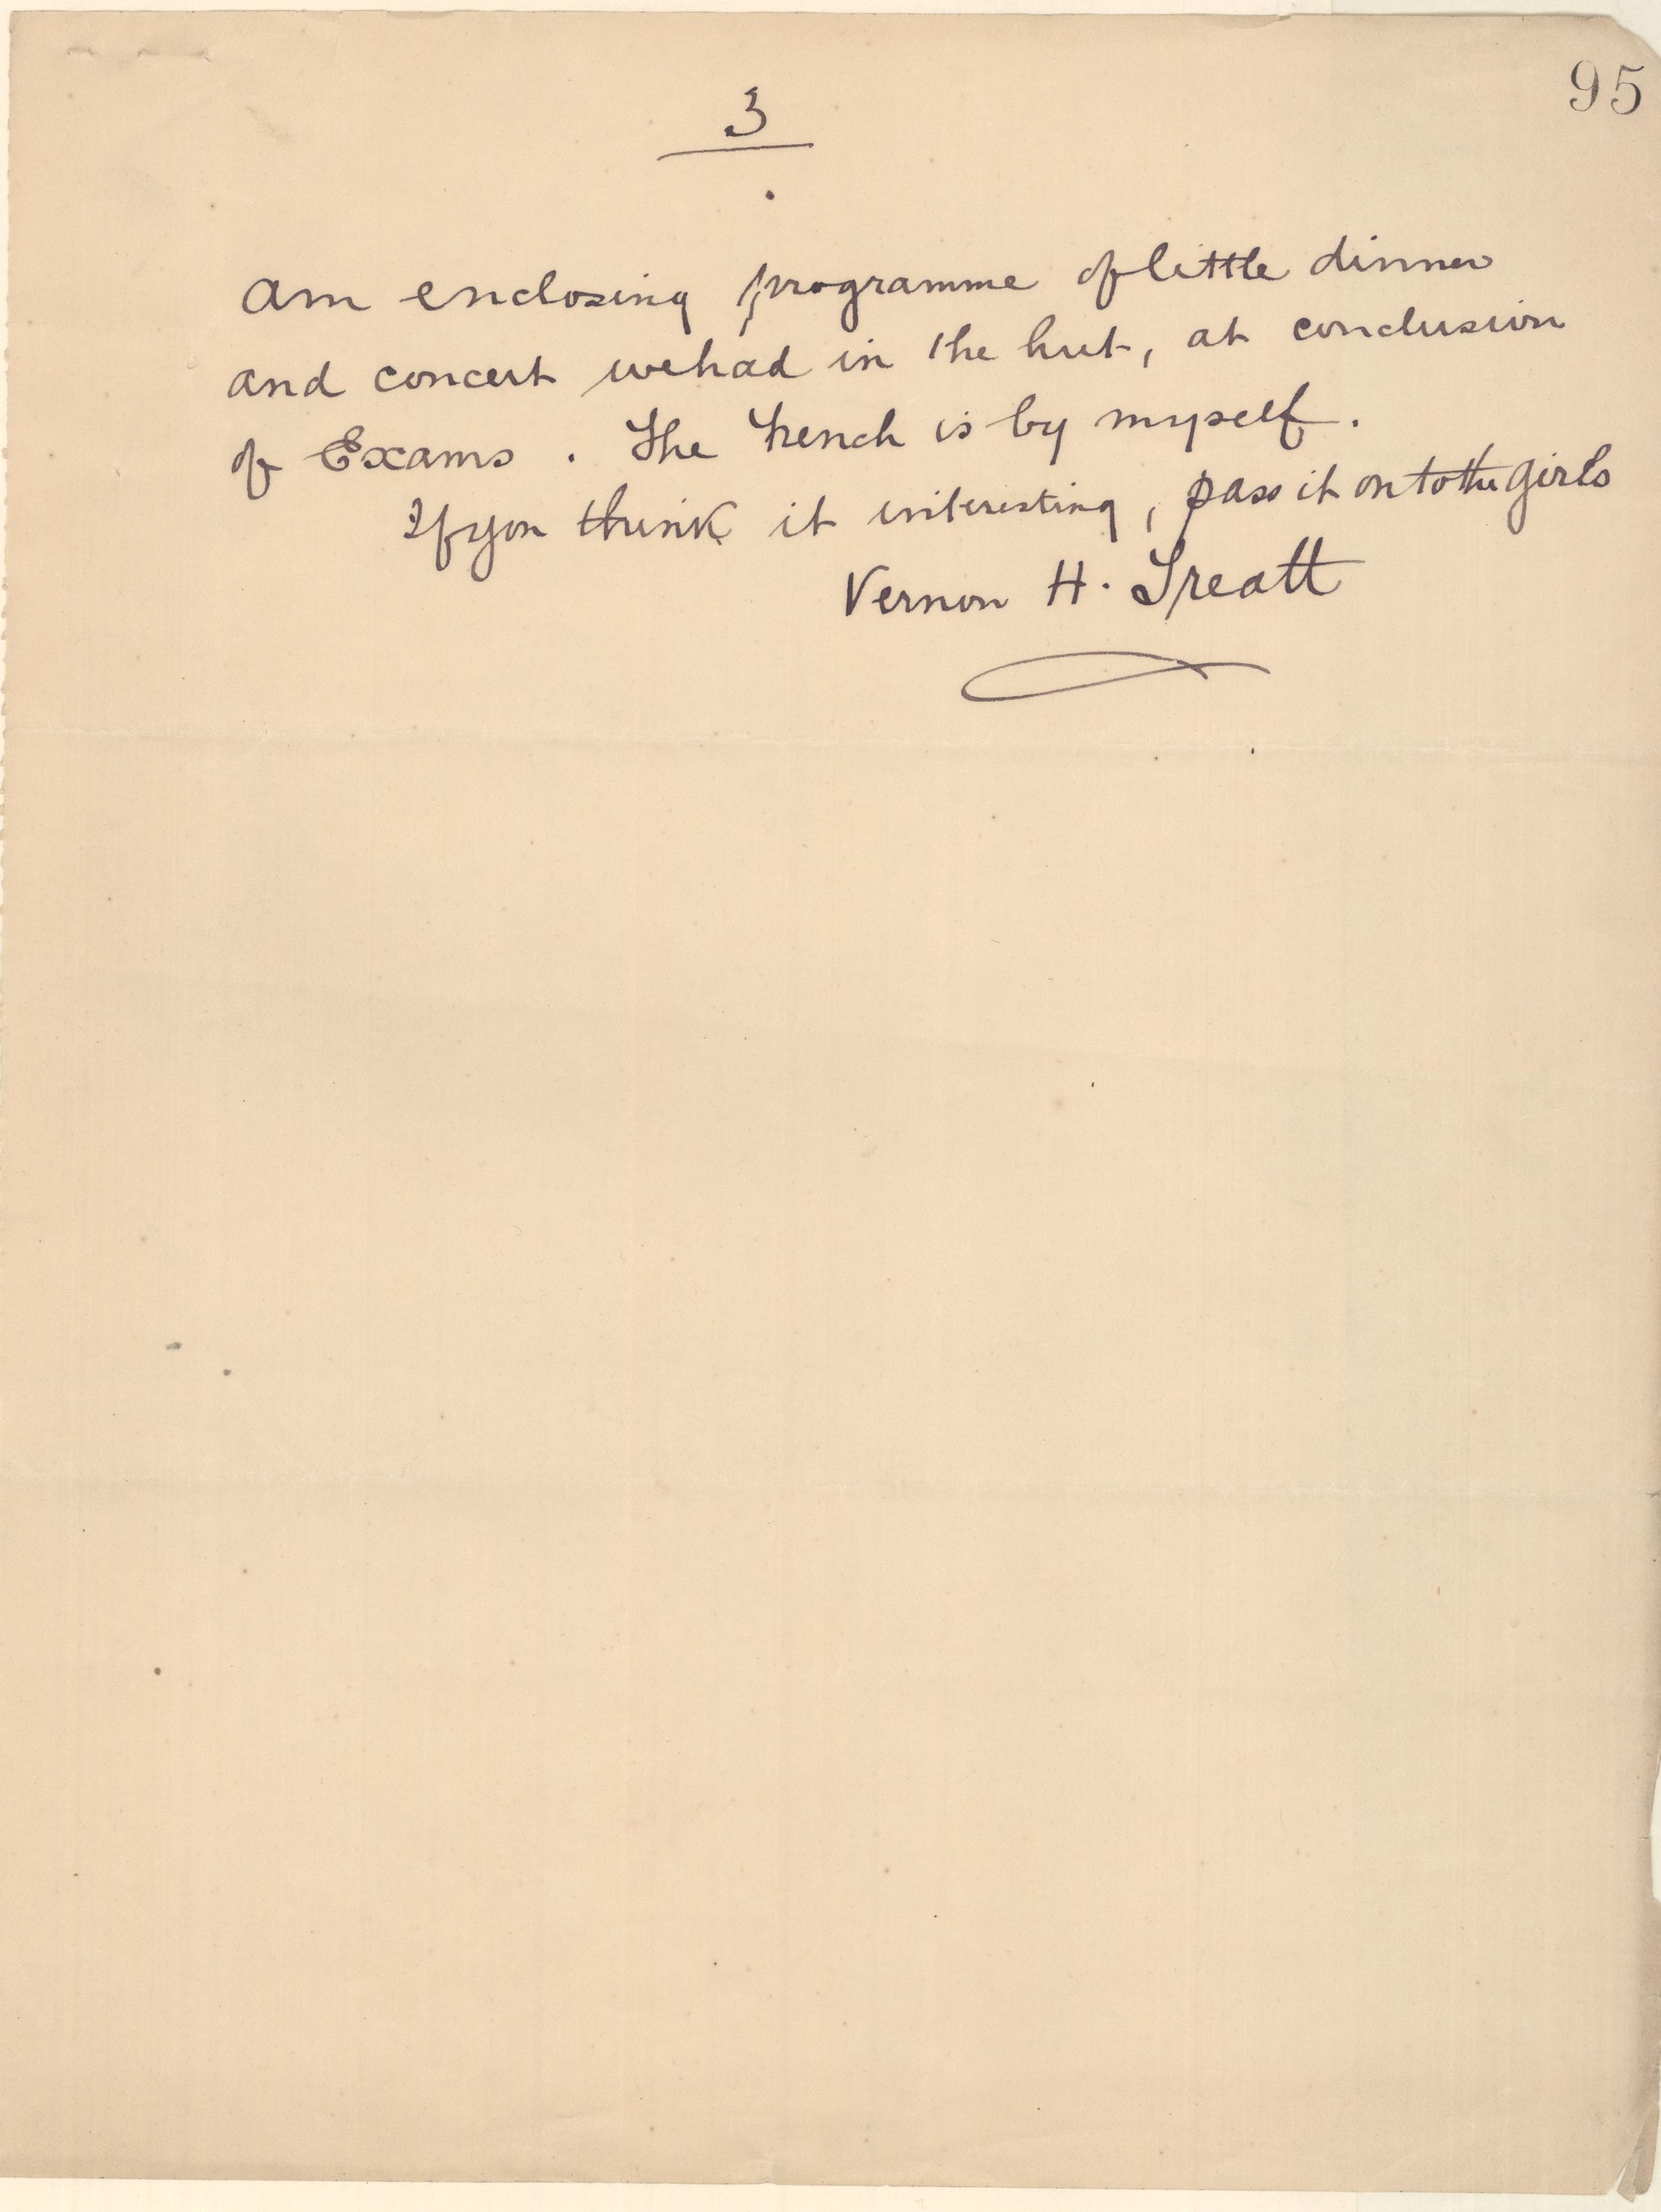 95
3
Am enclosing programme of little dinner
and concert we had in the hut, at conclusion
of Exams. The French is by myself.
If you think it interesting, pass it on to the girls
Vernon H. Treatt